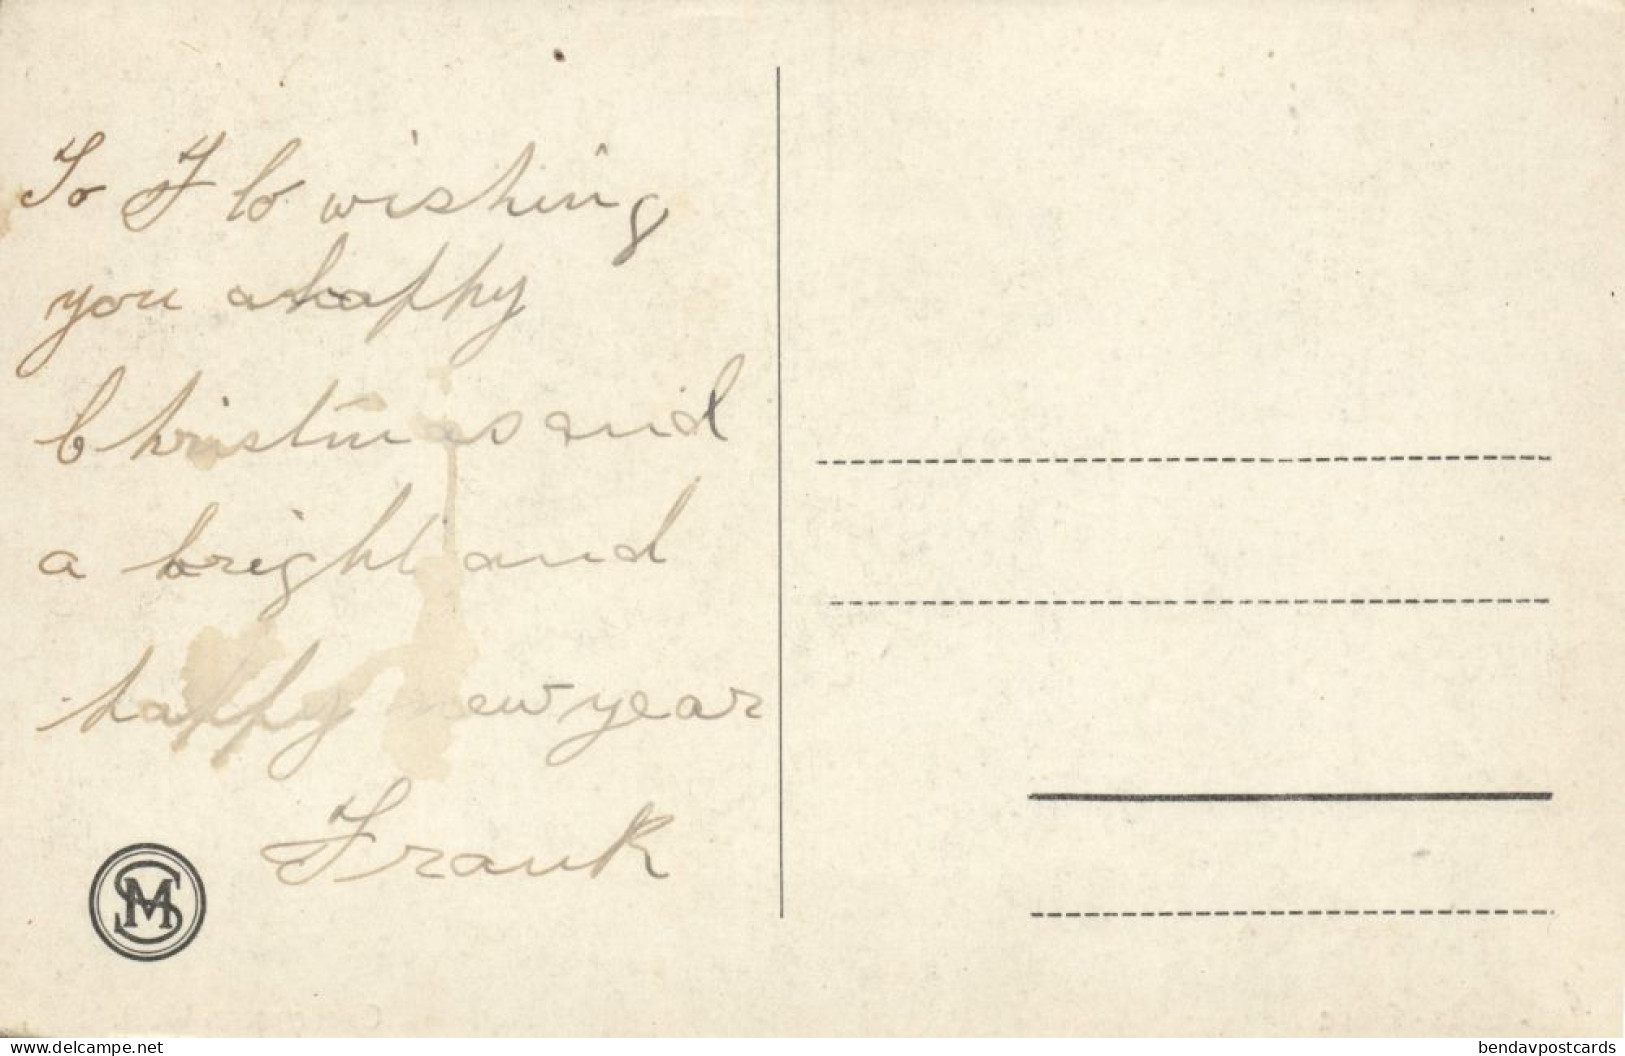 To Flo wishing
you a happy
Christmas and
a bright and
happy new year
Frank
SM
www.delcampe.net
bendavpostcards